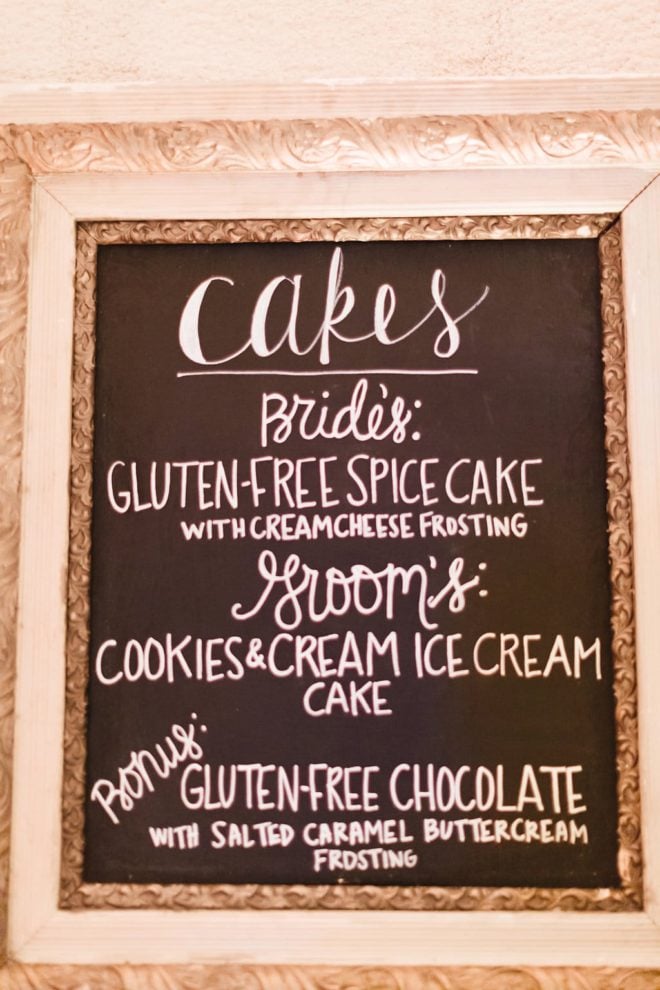 Cakes
Bride's:
GLUTEN-FREE SPICE CAKE
WITH CREAM CHEESE FROSTING
Groom's:
COOKIES & CREAM ICE CREAM
CAKE
Bonus:
GLUTEN-FREE CHOCOLATE
WITH SALTED CARAMEL BUTTERCREAM
FROSTING